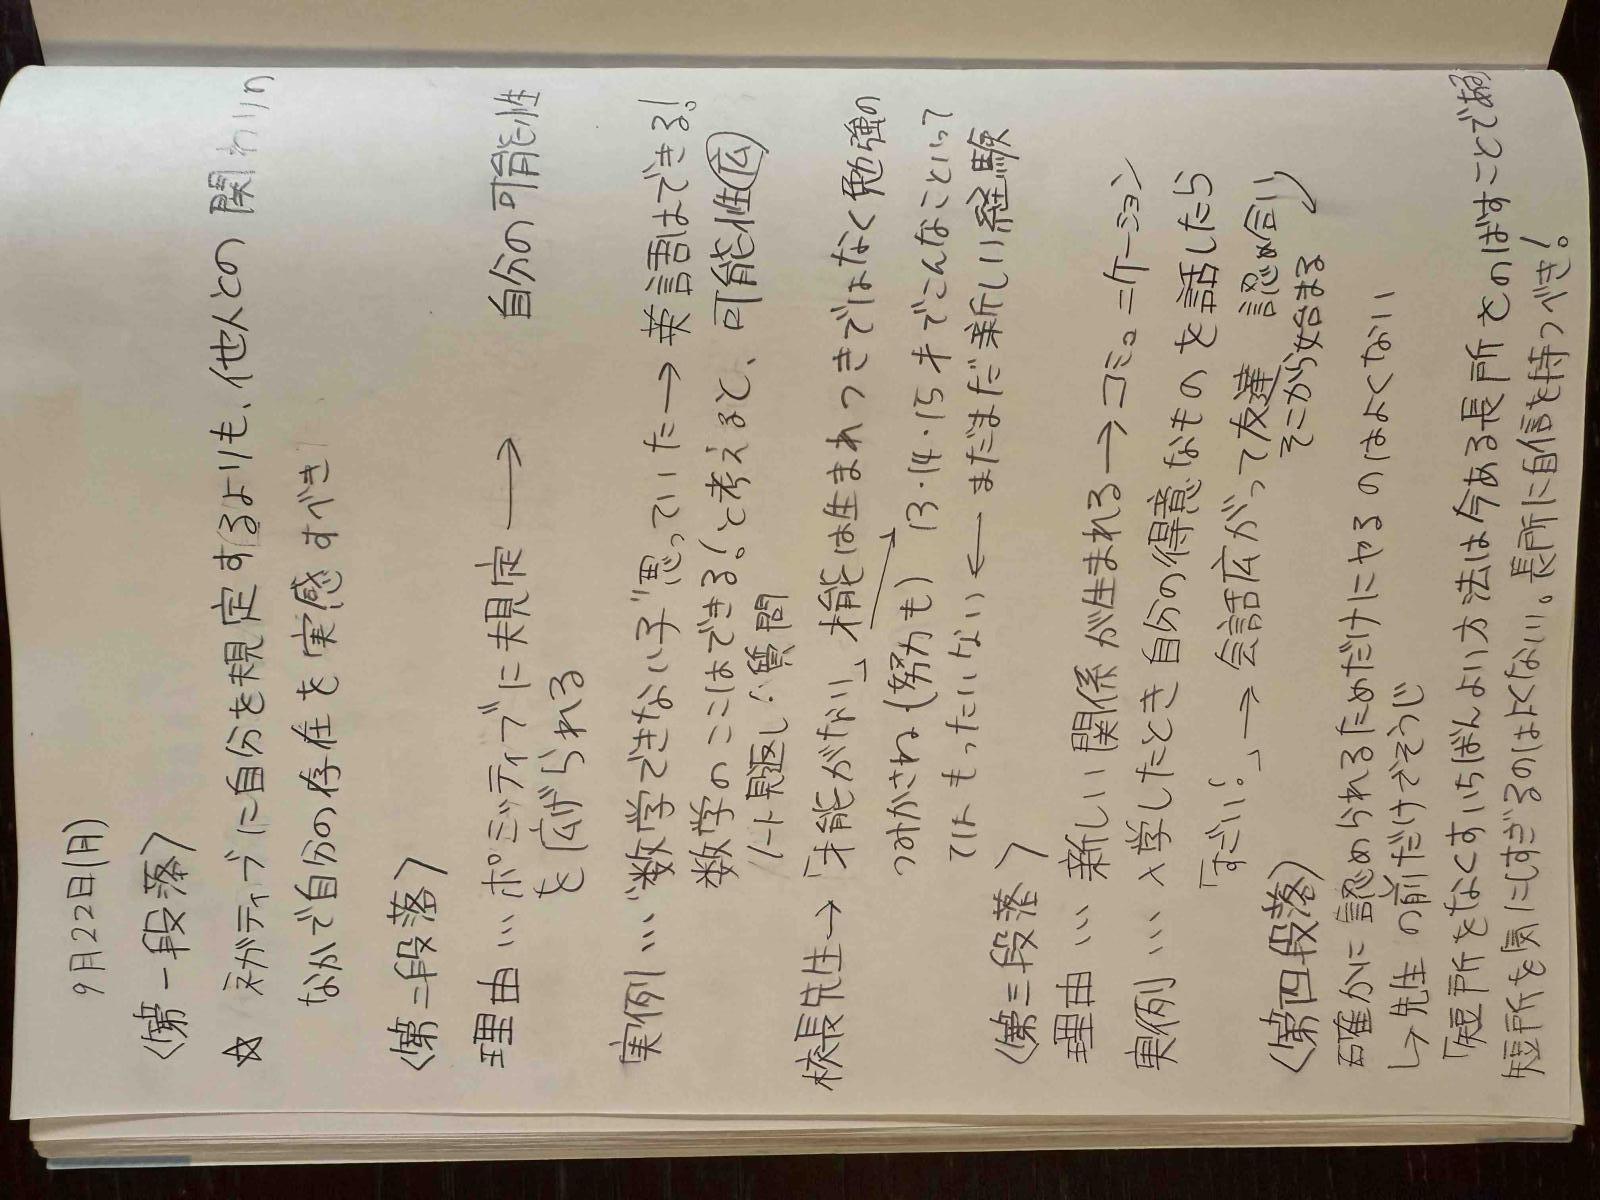 9月22日(月)
〈第一段落〉
☆ ネガティブに自分を規定するよりも、他人との関わりの
なかで自分の存在を実感すべき
〈第二段落〉
理由…ポジティブに規定 → 自分の可能性
を広げられる
実例…"数学できない子"思っていた→英語はできる!
数学のここはできる!と考えると、可能性広
ノート見返し・質問
校長先生→「才能がない」才能は生まれつきではなく勉強の
つみかさね(努力も) 13・14・15才でこんなこといって
てはもったいない ← まだまだ新しい経験
〈第三段落〉
理由… 新しい関係が生まれる→コミュニケーション
実例… 入学したとき自分の得意なものを話したら
「すごい!」→会話広がって友達 認め合い
そこから始まる
〈第四段落〉
確かに認められるためだけにやるのはよくない
↳先生の前だけでそうじ
「短所をなくすいちばんよい方法は今ある長所をのばすことである」
短所を気にしすぎるのはよくない。長所に自信を持つべき!